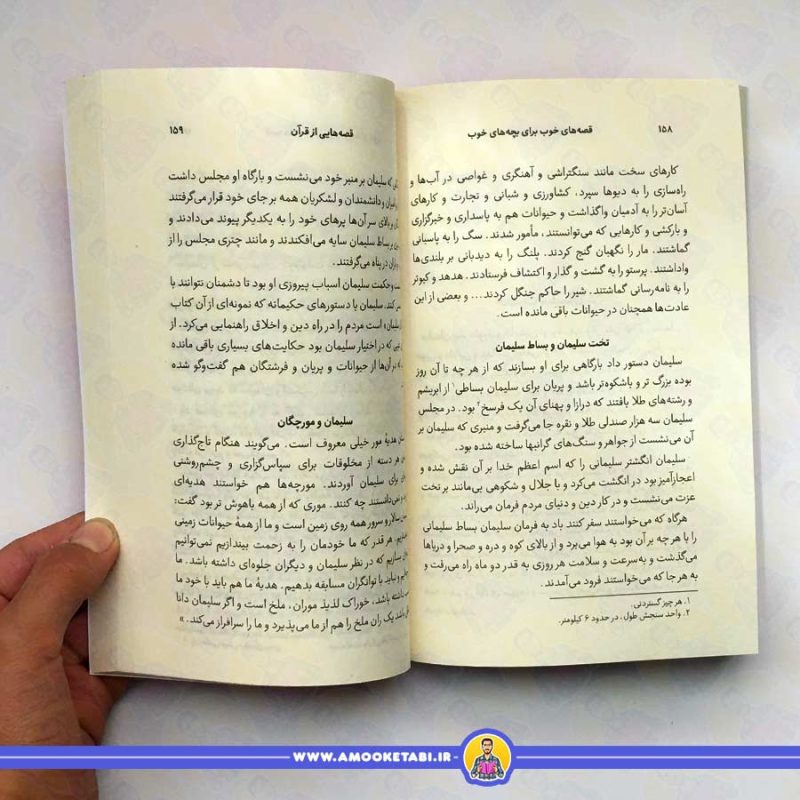 ۱۵۸
قصه‌های خوب برای بچه‌های خوب
کارهای سخت مانند سنگتراشی و آهنگری و غواصی در آب‌ها و
راه‌سازی را به دیوها سپرد، کشاورزی و شبانی و تجارت و کارهای
آسان‌تر را به آدمیان واگذاشت و حیوانات هم به پاسداری و خبرگزاری
و بارکشی و کارهایی که می‌توانستند، مأمور شدند. سگ را به پاسبانی
گماشتند. مار را نگهبان گنج کردند. پلنگ را به دیدبانی بر بلندی‌ها
واداشتند. پرستو را به گشت و گذار و اکتشاف فرستادند. هدهد و کبوتر
را به نامه‌رسانی گماشتند. شیر را حاکم جنگل کردند... و بعضی از این
عادت‌ها همچنان در حیوانات باقی مانده است.
تخت سلیمان و بساط سلیمان
سلیمان دستور داد بارگاهی برای او بسازند که از هر چه تا آن روز
بوده بزرگ تر و باشکوه‌تر باشد و پریان برای سلیمان بساطی۱ از ابریشم
و رشته‌های طلا بافتند که درازا و پهنای آن یک فرسخ۲ بود. در مجلس
سلیمان سه هزار صندلی طلا و نقره جا می‌گرفت و منبری که سلیمان بر
آن می‌نشست از جواهر و سنگ‌های گرانبها ساخته شده بود.
سلیمان انگشتر سلیمانی را که اسم اعظم خدا بر آن نقش شده و
اعجازآمیز بود در انگشت می‌کرد و با جلال و شکوهی بی‌مانند بر تخت
عزت می‌نشست و در کار دین و دنیای مردم فرمان می‌راند.
هرگاه که می‌خواستند سفر کنند باد به فرمان سلیمان بساط سلیمانی
را با هر چه بر آن بود به هوا می‌برد و از بالای کوه و دره و صحرا و دریاها
می‌گذشت و به‌سرعت و سلامت هر روزی به قدر دو ماه راه می‌رفت و
به هر جا که می‌خواستند فرود می‌آمدند.
۱. هر چیز گستردنی.
۲. واحد سنجش طول، در حدود ۶ کیلومتر.
قصه‌هایی از قرآن
۱۵۹
که سلیمان بر منبر خود می‌نشست و بارگاه او مجلس داشت
و دانشمندان و لشکریان همه بر جای خود قرار می‌گرفتند
بر بالای سر آن‌ها پرهای خود را به یکدیگر پیوند می‌دادند و
بر بساط سلیمان سایه می‌افکندند و مانند چتری مجلس را از
باران در پناه می‌گرفتند.
و حکمت سلیمان اسباب پیروزی او بود تا دشمنان نتوانند با
کنند. سلیمان با دستورهای حکیمانه که نمونه‌ای از آن کتاب
سلیمان» است مردم را در راه دین و اخلاق راهنمایی می‌کرد. از
که در اختیار سلیمان بود حکایت‌های بسیاری باقی مانده
در آن‌ها از حیوانات و پریان و فرشتگان هم گفت‌وگو شده
سلیمان و مورچگان
هدیهٔ مور خیلی معروف است. می‌گویند هنگام تاج‌گذاری
هر دسته از مخلوقات برای سپاس‌گزاری و چشم‌روشنی
برای سلیمان آوردند. مورچه‌ها هم خواستند هدیه‌ای
نمی‌دانستند چه کنند. موری که از همه باهوش تر بود گفت:
سالار و سرور همه روی زمین است و ما از همهٔ حیوانات زمینی
هر قدر که ما خودمان را به زحمت بیندازیم نمی‌توانیم
بسازیم که در نظر سلیمان و دیگران جلوه‌ای داشته باشد. ما
و نباید با توانگران مسابقه بدهیم. هدیهٔ ما هم باید با خود ما
داشته باشد. خوراک لذیذ موران، ملخ است و اگر سلیمان دانا
باشد یک ران ملخ را هم از ما می‌پذیرد و ما را سرافراز می‌کند.»
WWW.AMOOKETABI.IR